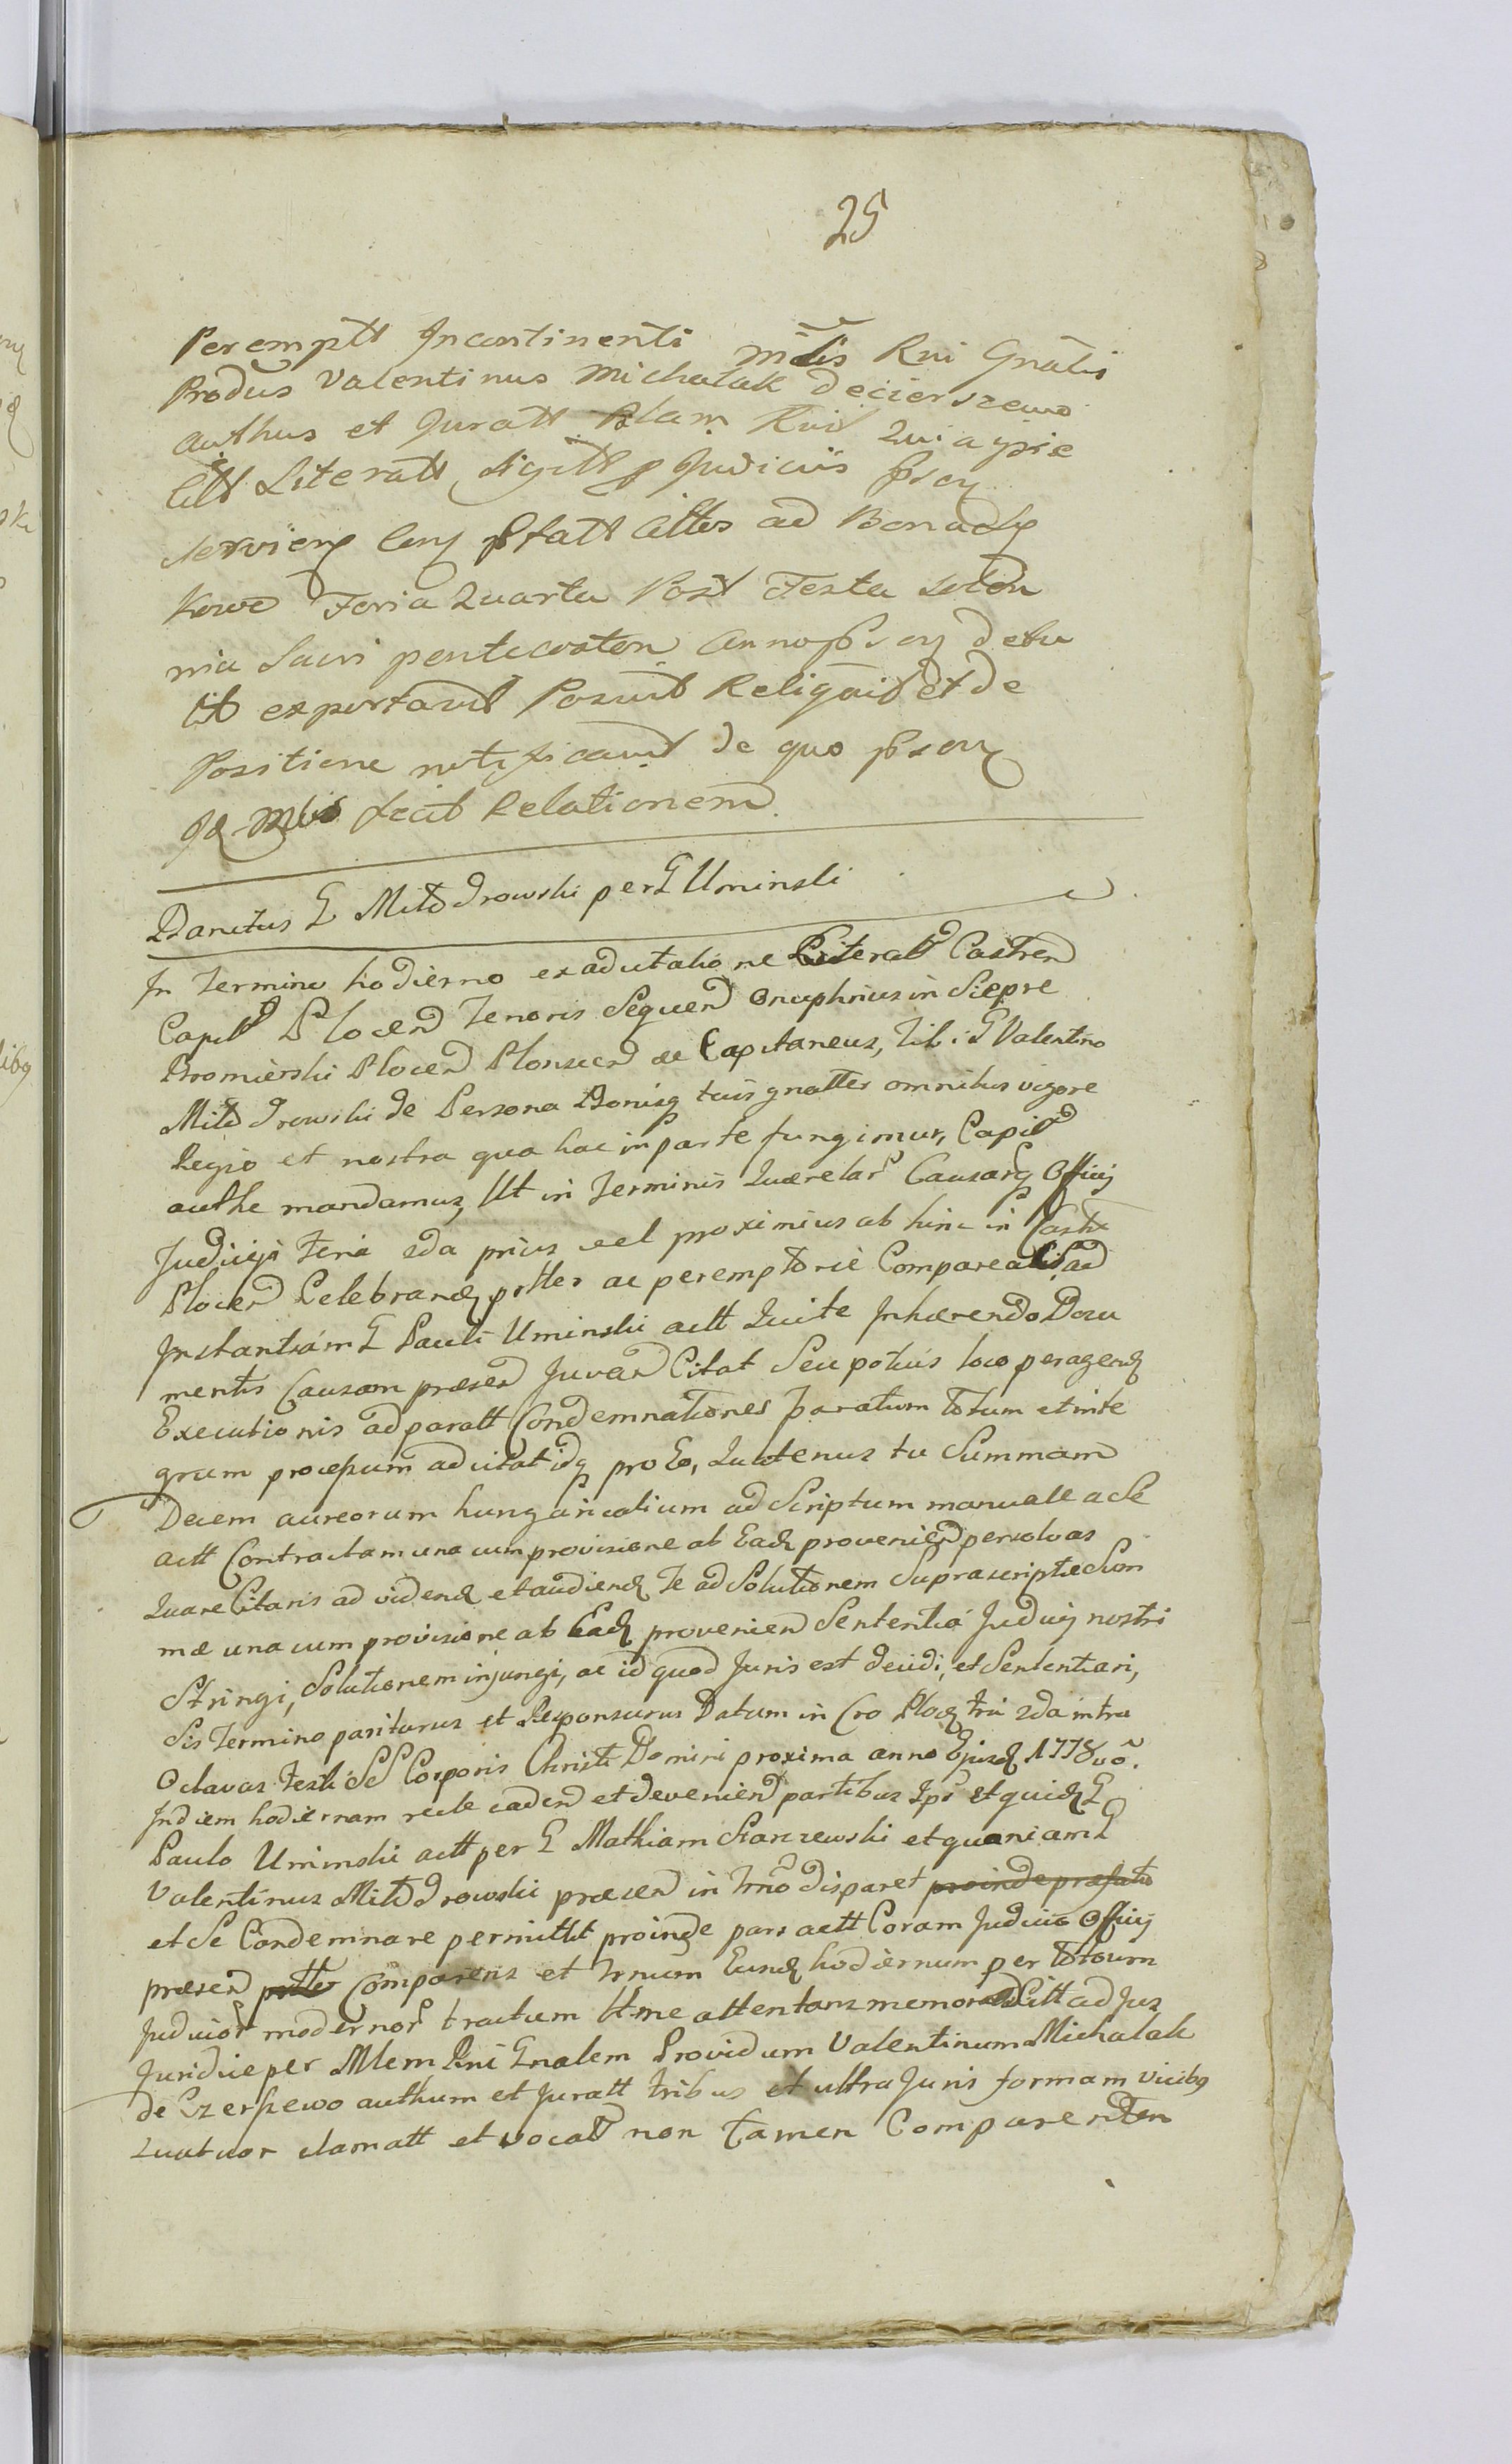 25
Peremptt Incontinenti Mtlis Rni Gnalis
Produs Valentinus Michalak de Cierszewo
Authus et Juratt Palam Rnit Quia ipse
Citt Literatt Sigitt p Judiciis psen
Servien Cen pfatt Cittes ad Bona Dę
kowe Feria Quarta Post Festa Solen
nia Sacri pentecosten Anno psen detu
lit exportavit Posuit Reliquit et de
Positione notificavit de quo psen
Id Mlis fecit Relationem
Banitus G Mild Drowski per G Uminski
In Termino hodierno ex adcitatione Literatt Castren
Capit Plocen Tenoris Sequen Onuphrius in Siepre
Bromierski Plocen Plonscen ae Capitaneus, Tibi G Valentino
Mild Drowski de Persona Bonisq tuis gnalter omnibus vigore
Regio et nostra qua hac in parte fungimur, Capit
authe mandamus, Ut in Terminis Querelar Causarq Officij
Judicijq Feria 2da prius vel proximius ab hinc in Castro
Plocen Celebrand ptter ac peremptorie Compareatis ad
Instantiam G Pauli Uminski actt Qui te Inhærendo Docu
mentis Causam præsen Juvan Citat Seu potius loco peragend
Executionis ad paratt Condemnationes paratum totum et inte
grum processum adcitat idq pro Eo, Quatenus tu Summam
Decem aureorum hungaricalium ad Scriptum manuale a Se
actt Contractam una cum provisione ab Ead provenien persolvas
Quare Citaris ad videnđ et audienđ Te ad Solutionem Suprascriptæ Som
mæ una cum provisione ab Ead provenien Sententia Judicij nostri
Stringi, Solutionem injungi, ac id quod Juris est decidi, et Sententiari,
Sis Termino pariturus et Responsurus Datum in Cro Ploc fria 2da intra
Octavas Festi SS Corporis Christi Domini proxima anno Ejusd 1778vo.
In diem hodiernam recte caden et devenien partibus Ips et quid G
Paulo Uminski actt per G Mathiam Starzewski et quoniam G
Valentinus Mild Drowski præsen in Trno disparet proinde præfato
et Se Condemnare permittit proinde pars actt Coram Judicio Officij
præsen ptter Comparens et Trnum Eund hodiernum per totum
Judicior modernor tractum Ittme attentans memorad Citt ad Jus
Juridice per Mlem Rni Gnalem Providum Valentinum Michalak
de Czerszewo authum et Juratt tribus et ultra Juris formam vicibq
Quatuor clamatt et vocatt non tamen Comparenten